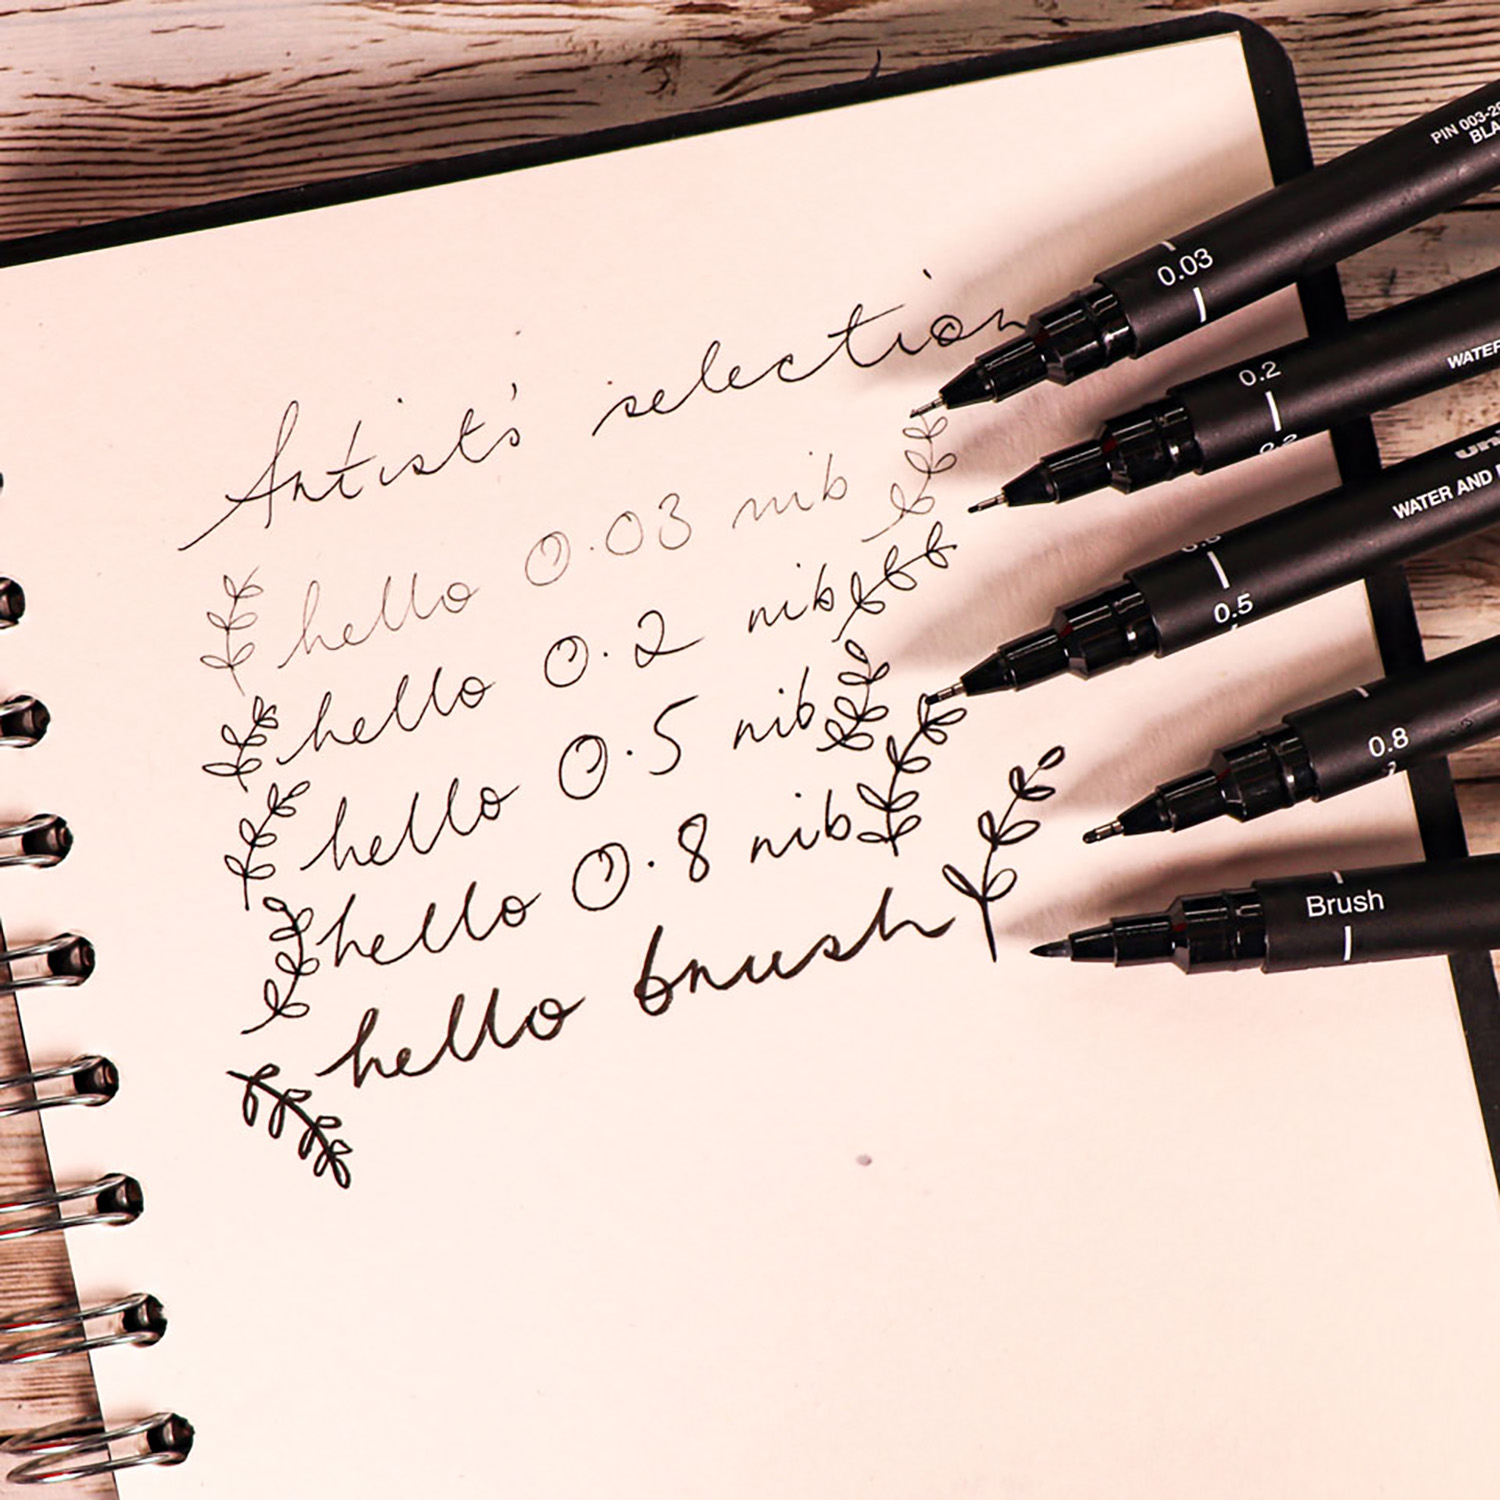 Artist's selection
hello 0.03 nib
hello 0.2 nib
hello 0.5 nib
hello 0.8 nib
hello brush
PIN 003-2
BLA
0.03
WATER
0.2
0.2
uni
WATER AND
0.5
0.8
Brush